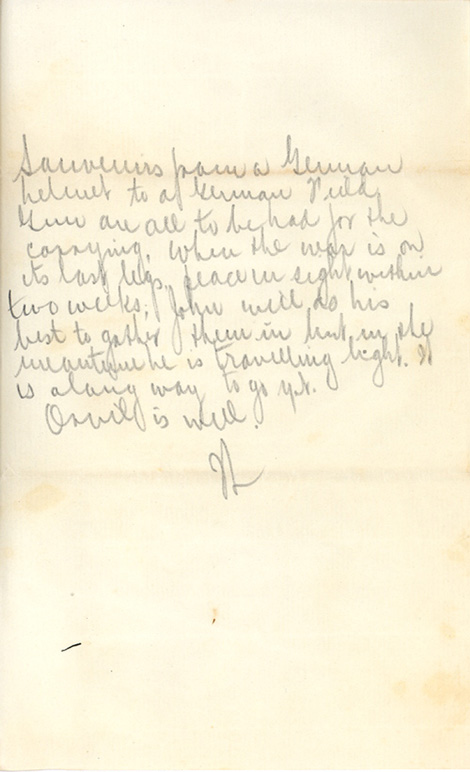 Souvenirs from a German
helmet to a German Field
Gun are all to be had for the
carrying. When the war is on
its last legs, peace in sight within
two weeks, John will do his
best to gather them in but in the
meantime he is travelling light. It
is a long way to go yet.
Orvil is well.